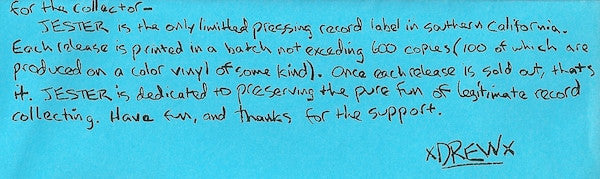 for the collector-
JESTER is the only limitted pressing record label in southern California.
Each release is printed in a batch not exceding 600 copies (100 of which are
produced on a color vinyl of some kind). Once each release is sold out, thats
it. JESTER is dedicated to preserving the pure fun of legitimate record
collecting. Have fun, and thanks for the support.
xDREWx